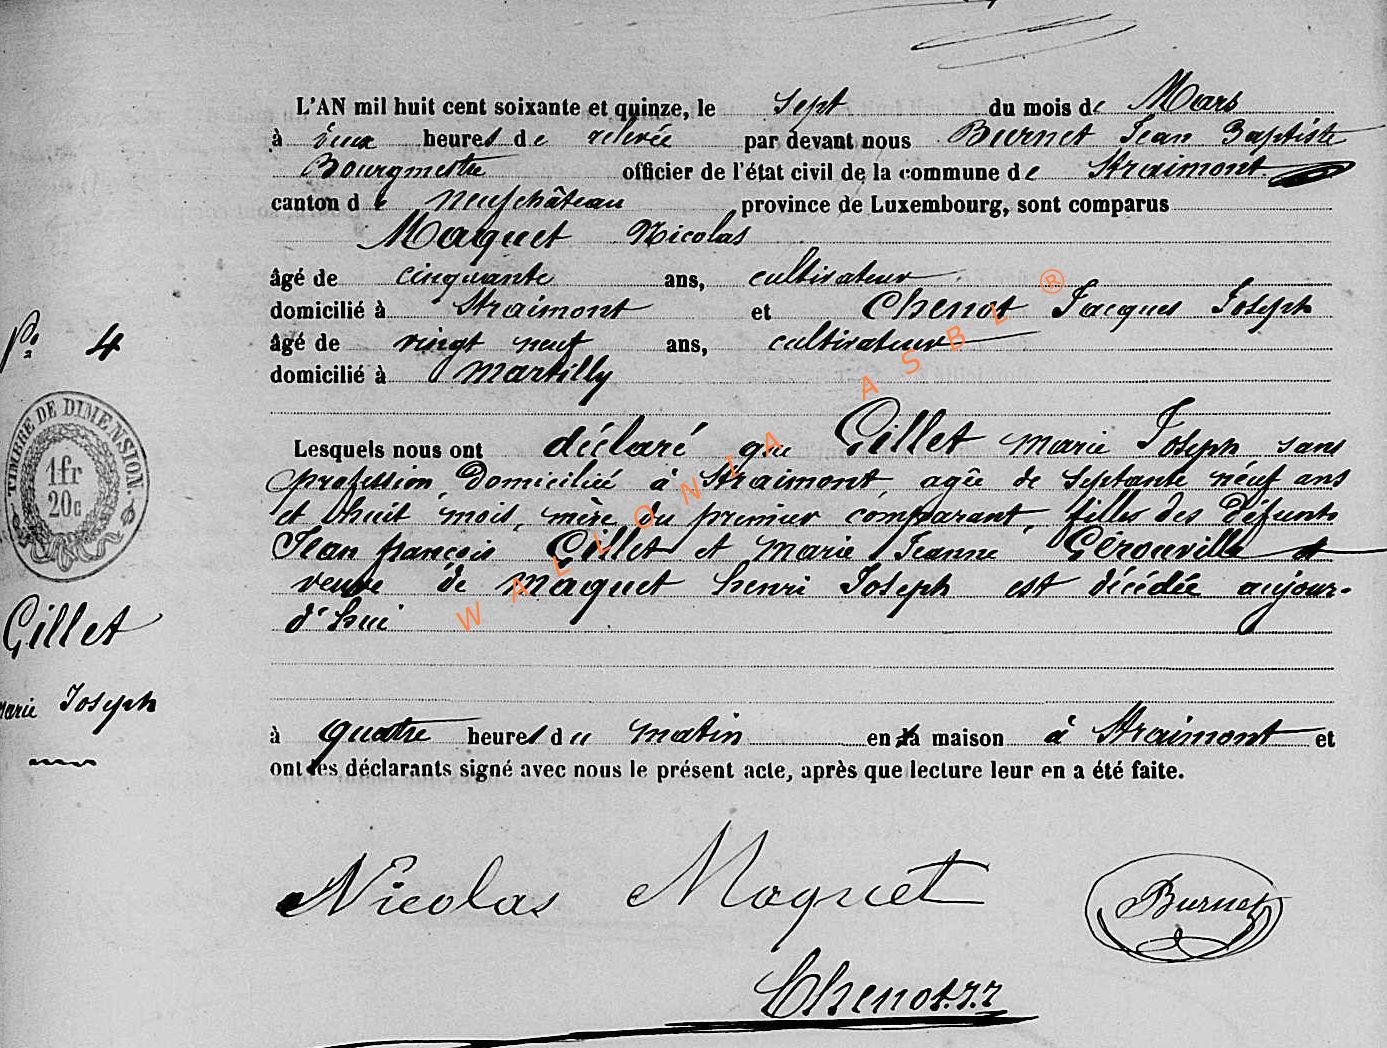 L'AN mil huit cent soixante et quinze, le sept du mois de Mars
à deux heures de relevée par devant nous Burnet Jean Baptiste
Bourgmestre officier de l'état civil de la commune de Straimont
canton de neufchâteau province de Luxembourg, sont comparus
Maquet Nicolas
âgé de cinquante ans, cultivateur
domicilié à Straimont et Chenot Jacques Joseph
âgé de vingt neuf ans, cultivateur
domicilié à martilly
Lesquels nous ont déclaré que Gillet marie Joseph, sans
profession, Domiciliée à Straimont, agée de Septante neuf ans
et huit mois, mère du premier comparant, fille des défunts
Jean françois Gillet et marie Jeanne Gérouville et
veuve de maquet henri Joseph est décédée aujour-
d'hui
à quatre heures du matin en sa maison à Straimont et
ont les déclarants signé avec nous le présent acte, après que lecture leur en a été faite.
Nicolas Maquet
Burnet
Chenot. J. J
No. 4
TIMBRE DE DIMENSION.
1fr
20c
Gillet
marie Joseph
WALLONIA ASBL ®